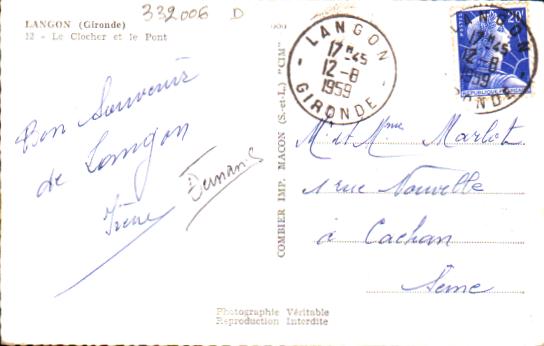 LANGON (Gironde)
12 - Le Clocher et le Pont
332006 D
Bon Souvenir
de Langon
Irène
COMBIER IMP. MACON (S.-et-L.) "CIM"
LANGON
17H45
12-8
1959
GIRONDE
20F
LANGON
17H45
12-8
1959
GIRONDE
Mr et Mme Marlot
1 rue Nouvelle
à Cachan
Seine
Photographie Véritable
Reproduction Interdite